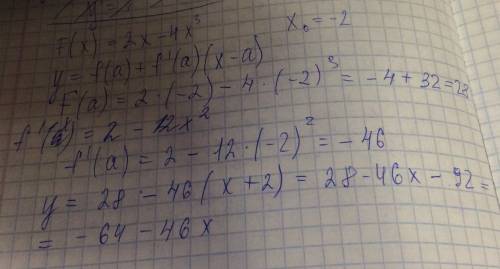 F(x) = 2x - 4x³
x₀ = -2
y = f(a) + f'(a)(x - a)
F(a) = 2 · (-2) - 4 · (-2)³ = -4 + 32 = 28
f'(a) = 2 - 12x²
f'(a) = 2 - 12 · (-2)² = -46
y = 28 - 46(x + 2) = 28 - 46x - 92 =
= -64 - 46x